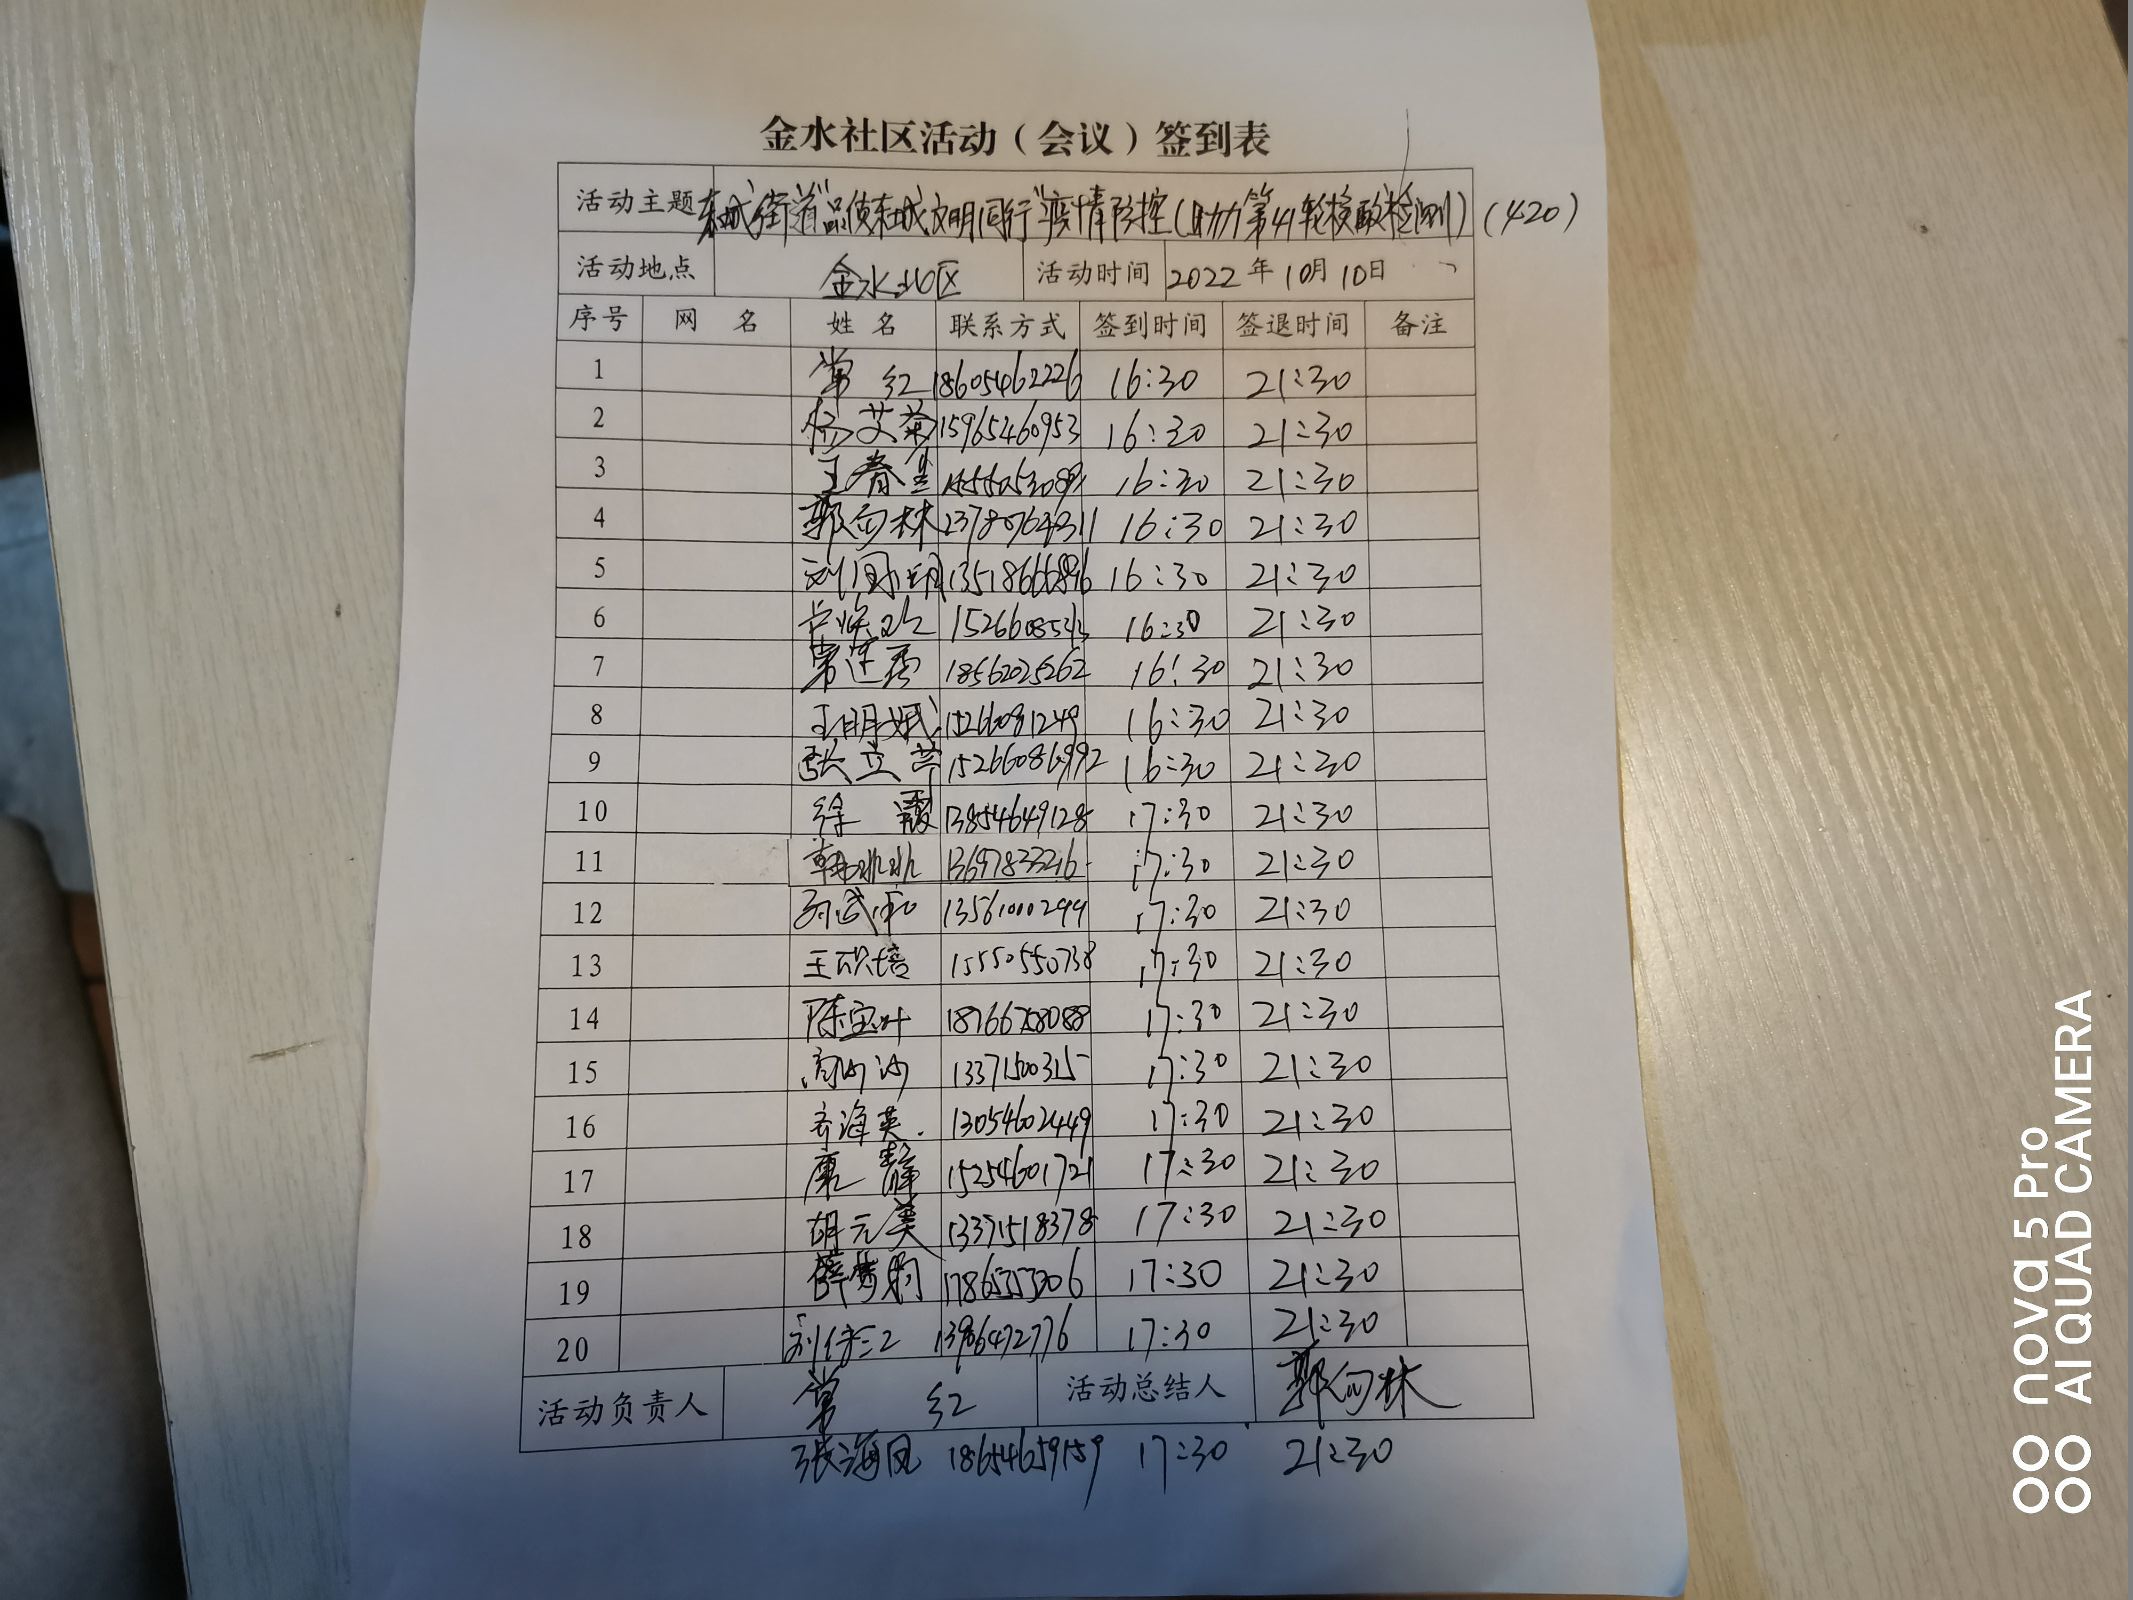 金水社区活动（会议）签到表
活动主题 东城街道"品质东城文明同行"疫情防控（助力第41轮核酸检测）（420）
活动地点 金水北区 活动时间 2022年10月10日
序号 网 名 姓 名 联系方式 签到时间 签退时间 备注
1 常 红 18605462226 16:30 21:30
2 杨艾菊 15965460953 16:30 21:30
3 王春生 16:30 21:30
4 郭向林 16:30 21:30
5 刘国明 16:30 21:30
6 16:30 21:30
7 常连香 18562025262 16:30 21:30
8 王明娥 15266081249 16:30 21:30
9 张立芹 15266086992 16:30 21:30
10 徐 霞 13854649128 17:30 21:30
11 韩冰冰 17:30 21:30
12 13561000299 17:30 21:30
13 15550550738 17:30 21:30
14 陈宝叶 18766728088 17:30 21:30
15 高沙沙 17:30 21:30
16 齐海英. 13054602449 17:30 21:30
17 康 静 15254601721 17:30 21:30
18 胡元美 13371518378 17:30 21:30
19 薛梦莉 17:30 21:30
20 17:30 21:30
活动负责人 常 红 活动总结人 郭向林
张海凤 18654659159 17:30 21:30
nova 5 Pro
AI QUAD CAMERA